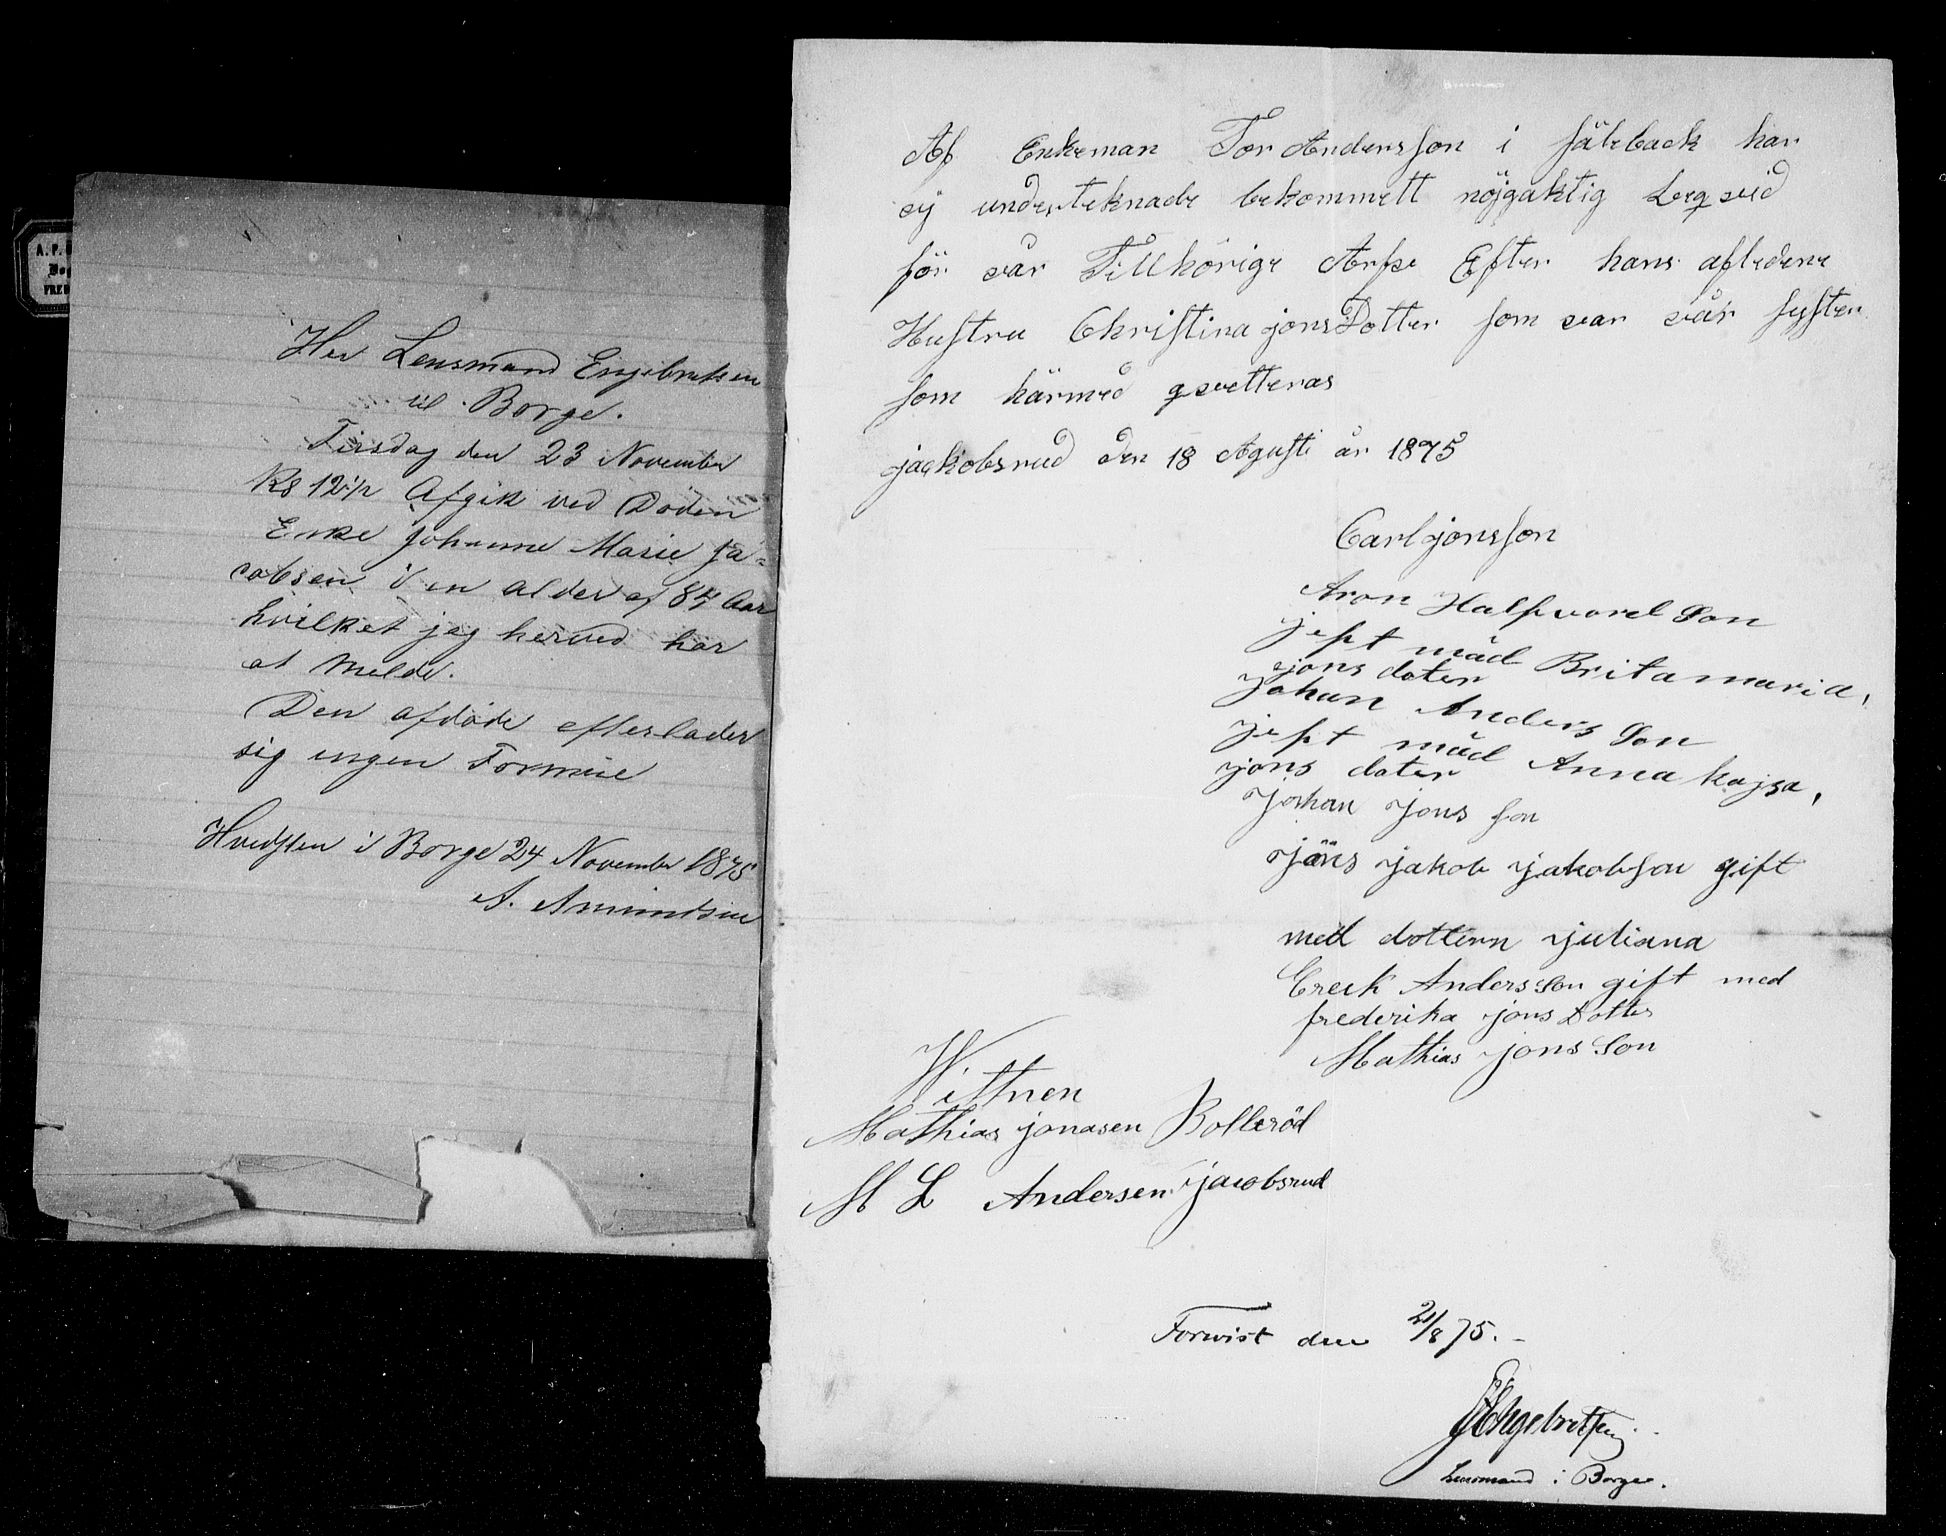 A.P.
FRED
Her Lensmand Engebretsen
til Borge.
Tirsdag den 23 November
Kl 12½ Afgik ved Døden
Enke Johanne Marie Ja=
cobsen i en alder af 84 Aar
hvilket jeg herved har
at Melde.
Den afdøde efterlader
sig ingen Formue
Hvidsten i Borge 24 November 1875
A. Amundsen
Af Enkeman Tor Andersson i säleback har
vj underteknade bekommett nöjgaktig Leqvid
för vår Tillhörige Arfve Efter hans afledene
Hustru Christina jonsDotter som var vår syster
som härmed qvetteras
jackobsrud den 18 Agusti år 1875
Carl jonsson
Aron Halfvord Son
jeft mäd Brita maria,
jons doter
johan Anders Son
jeft mäd Anna kajsa,
jons doter
johan jons son
jöns jakob jakobson gift
med dottern juliana
Ereck Andersson gift med
frederika jons Dotter
Mathias jons Son
Wittnen
Mathias jonasen Bolleröd
M L Andersen jacobsrud
Forvist den 21/8 75.-
Engebretsen
Lensmand i Borge.